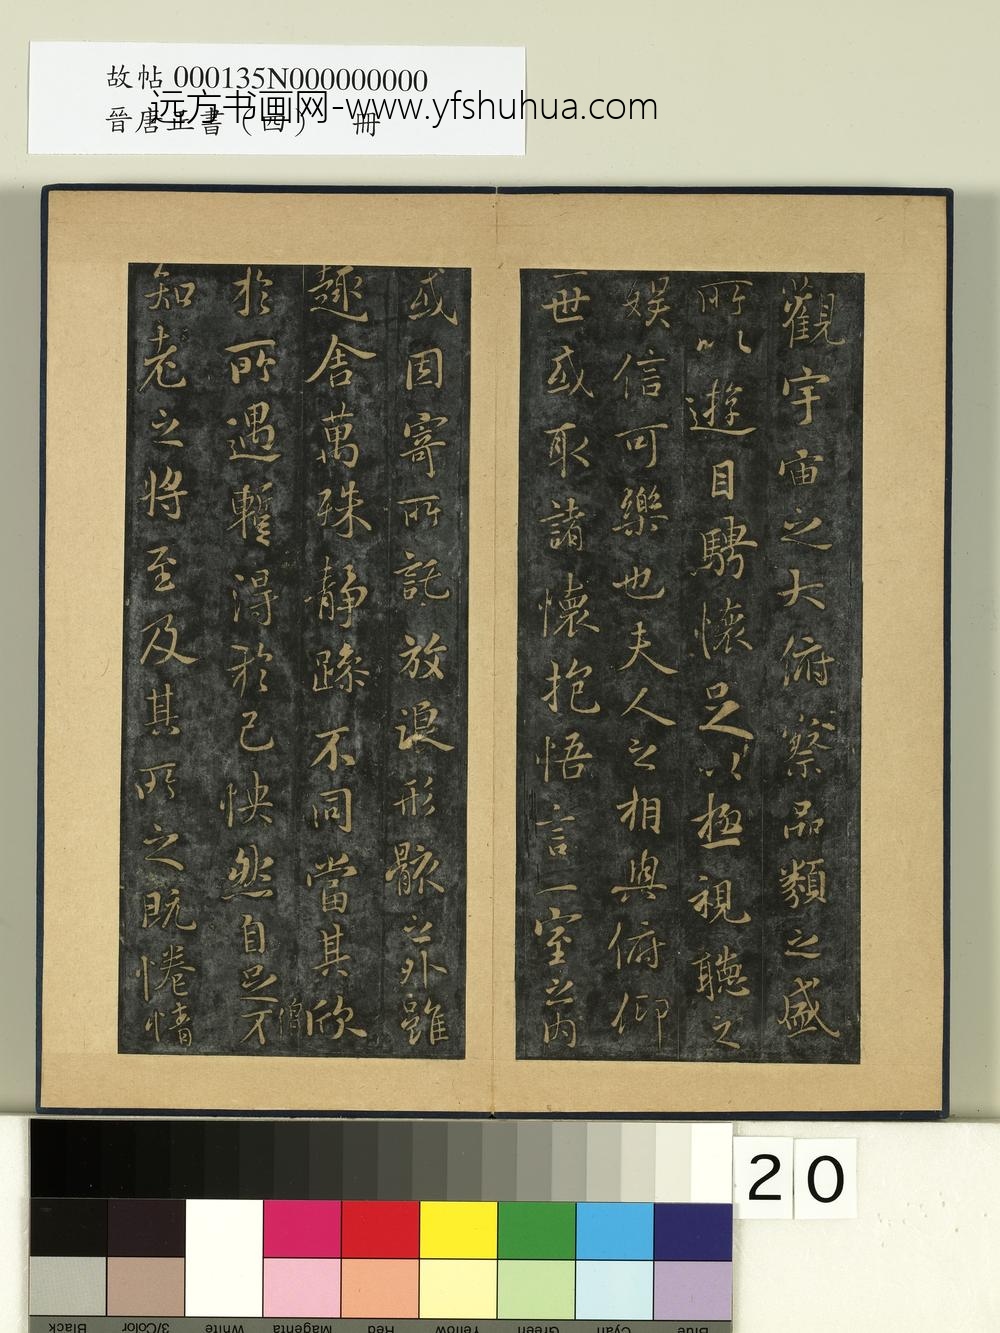 故帖000135N000000000
晉唐正書（四） 冊
远方书画网-www.yfshuhua.com
觀宇宙之大俯察品類之盛
所以遊目騁懷足以極視聽之
娛信可樂也夫人之相與俯仰
一世或取諸懷抱悟言一室之內
或因寄所託放浪形骸之外雖
趣舍萬殊靜躁不同當其欣
於所遇暫得於己怏然自足不
僧
知老之將至及其所之既惓情
20
Black
3/Color
White
Magenta
Red
Yellow
Green
Cyan
Blue